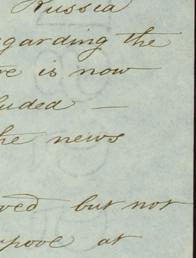 Russia
garding the
re is now
luded —
he news
ved but not
rpool at